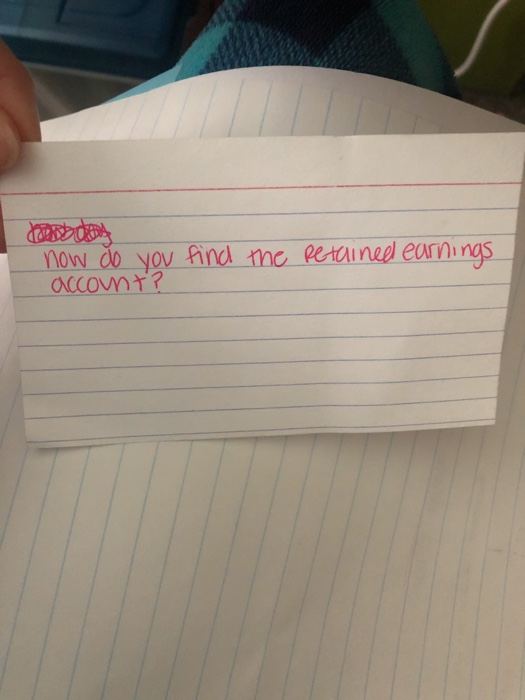 how do you find the Retained earnings
account?